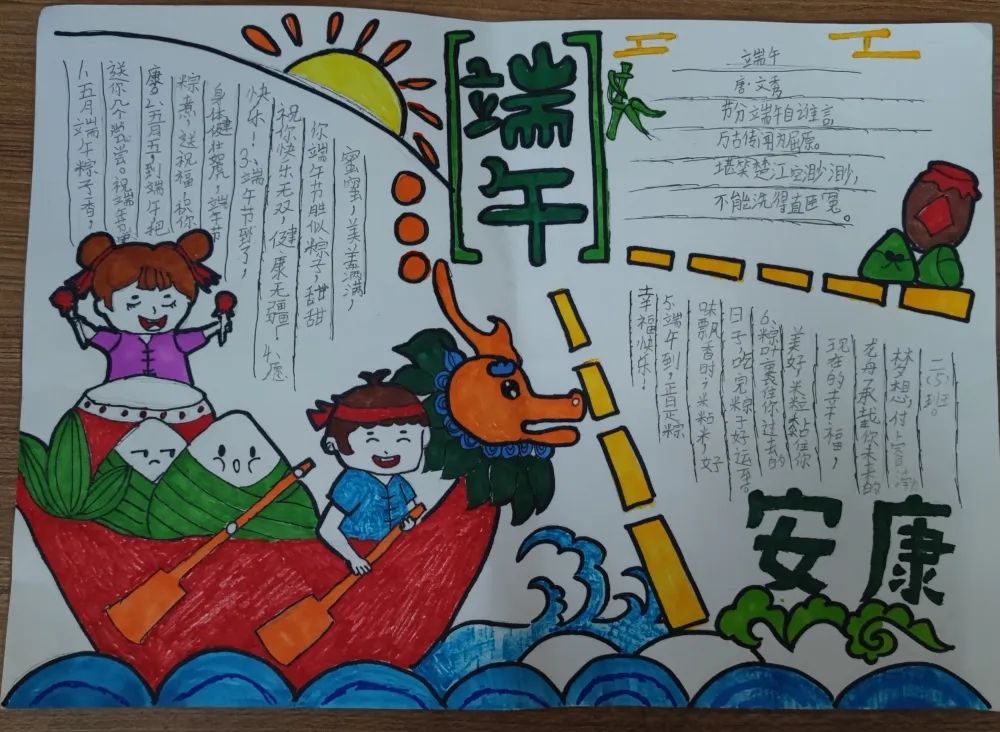 端午
1.五月端午粽子香，
送你几个尝尝。祝端午节
康。2.五月五，到端午把
粽煮，送祝福，祝你
身体健壮赛，端午节
快乐！3.端午节到了，
祝你快乐无双，健康无疆！4.愿
你端午节胜似粽子，甜甜
蜜蜜，美美满满，
端午
唐·文秀
节分端午自谁言
万古传闻为屈原。
堪笑楚江空渺渺，
不能洗得直臣冤。
幸福快乐！
5.端午到，正是粽
味飘香时，米粘米，好
日子，吃完粽子好运来。
6.粽叶裹住你过去的
美好，米粒黏住你
现在的幸福，
龙舟承载你未来的
梦想，付上
二(5)班。
安康